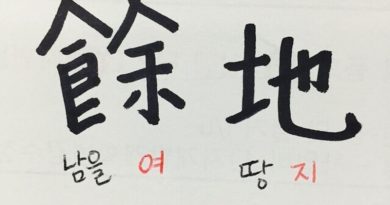 餘地
남을 여 땅 지